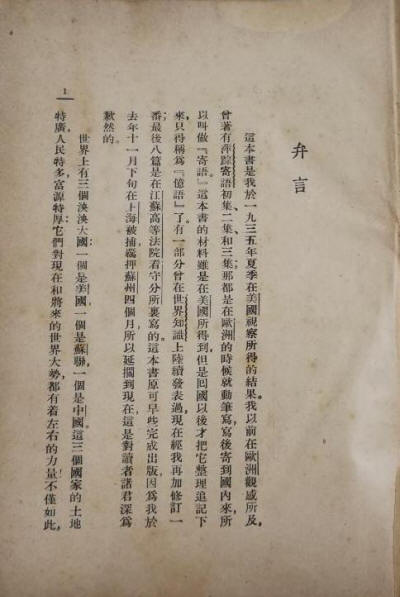 弁言
這本書是我於一九三五年夏季在美國視察所得的結果。我以前在歐洲觀感所及,
曾著有萍踪寄語初集、二集、和三集;那都是在歐洲的時候就動筆寫,寫後寄到國內來,所
以叫做『寄語』。這本書的材料雖是在美國所得到,但是回國以後才把它整理追記下
來,只得稱爲『憶語』了。有一部分曾在世界知識上陸續發表過,現在經我再加修訂一
番;最後八篇是在江蘇高等法院看守分所裏寫的。這本書原可早些完成出版,因爲我於
去年十一月下旬在上海被捕,羈押蘇州四個月,所以延擱到現在,這是對讀者諸君深爲
歉然的。
世界上有三個泱泱大國:一個是美國,一個是蘇聯,一個是中國。這三個國家的土地
特廣,人民特多,富源特厚;它們對現在和將來的世界大勢,都有着左右的力量。不僅如此,
1